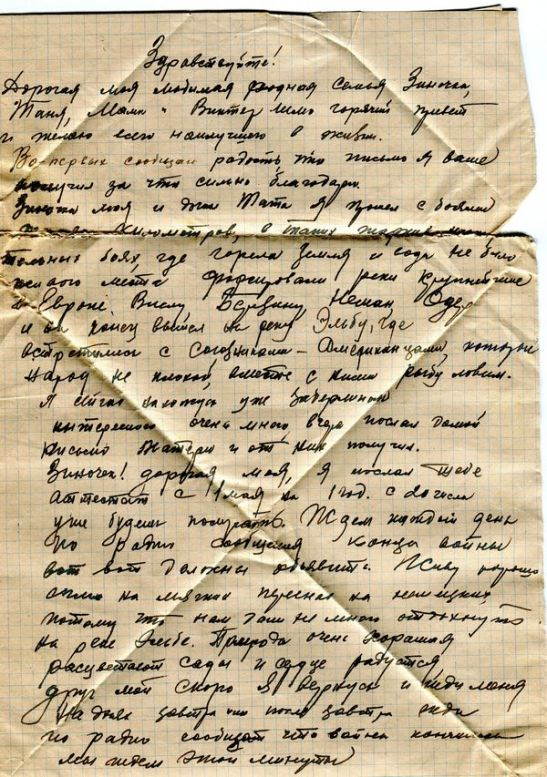 Здравствуйте!
Дорогая моя любимая родная семья Зиночка,
Таня, Мама и Виктер шлю горячий привет
и желаю всего наилучшего в жизни.
Во-первых сообщаю радость что письмо я ваше
получил за что сильно благодарю.
Зиночка моя и дочка Тата я прошел с боями
километров, в таких
тельных боях, где горела земля и где не было
живого места форсировали реки крупнейшие
в Европе. Вислу Березину, Неман Одер
и на конец вышел на реку Эльбу, где
встретились с союзниками - Американцами, которые
народ не плохой, вместе с ними рыбу ловим.
Я сейчас нахожусь уже за Берлином
интересного очень много вчера послал домой
письмо Матери и от них получил.
Зиночка! дорогая моя, я послал тебе
аттестат с 1 мая на 1 год. с 20 числа
уже будешь получать. Ждем каждый день
по радио сообщения конца войны
вот вот должны объявить. Живу хорошо
сплю на мягких перинах на немецких,
потому что нам дали не много отдохнуть
на реке Эльбе. Природа очень хорошая
расцветают сады и сердце радуется
друг мой скоро я вернусь и жди меня
на днях завтра или после завтра жди
по радио сообщат что война кончилась
мы ждем этой минуты